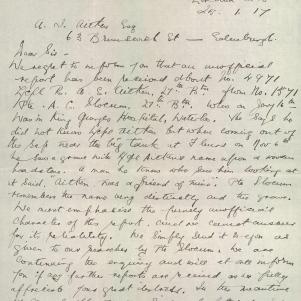 24.1.17
A. J. Aitken Esq
63 Brunswick St — Edinburgh.
Dear Sir —
We regret to inform you that an unofficial
report has been received about No. 4971
R. Aitken, 27th Bn. from No. 1571
Pte. A. C. Slocum, 27th Bn., who on Jany 16th
was in King Georges Hospital, Waterloo. He says he
did not know Aitken but when coming out of
the Sap near the big tank at Flers on Nov 6th
he saw a grave with Aitkens name upon a wooden
headstone. A man he knows who was looking at
it said, Aitken was a friend of mine. Pte Slocum
remembers the name being distinctly and the grave.
We must emphasise the purely unofficial
character of this report, and we cannot answer
for its reliability. We simply send it to you as
given to our searcher by Pte Slocum. We are
continuing the enquiry and will at once inform
you if any further reports are received as we fully
appreciate your great distress. In the meantime